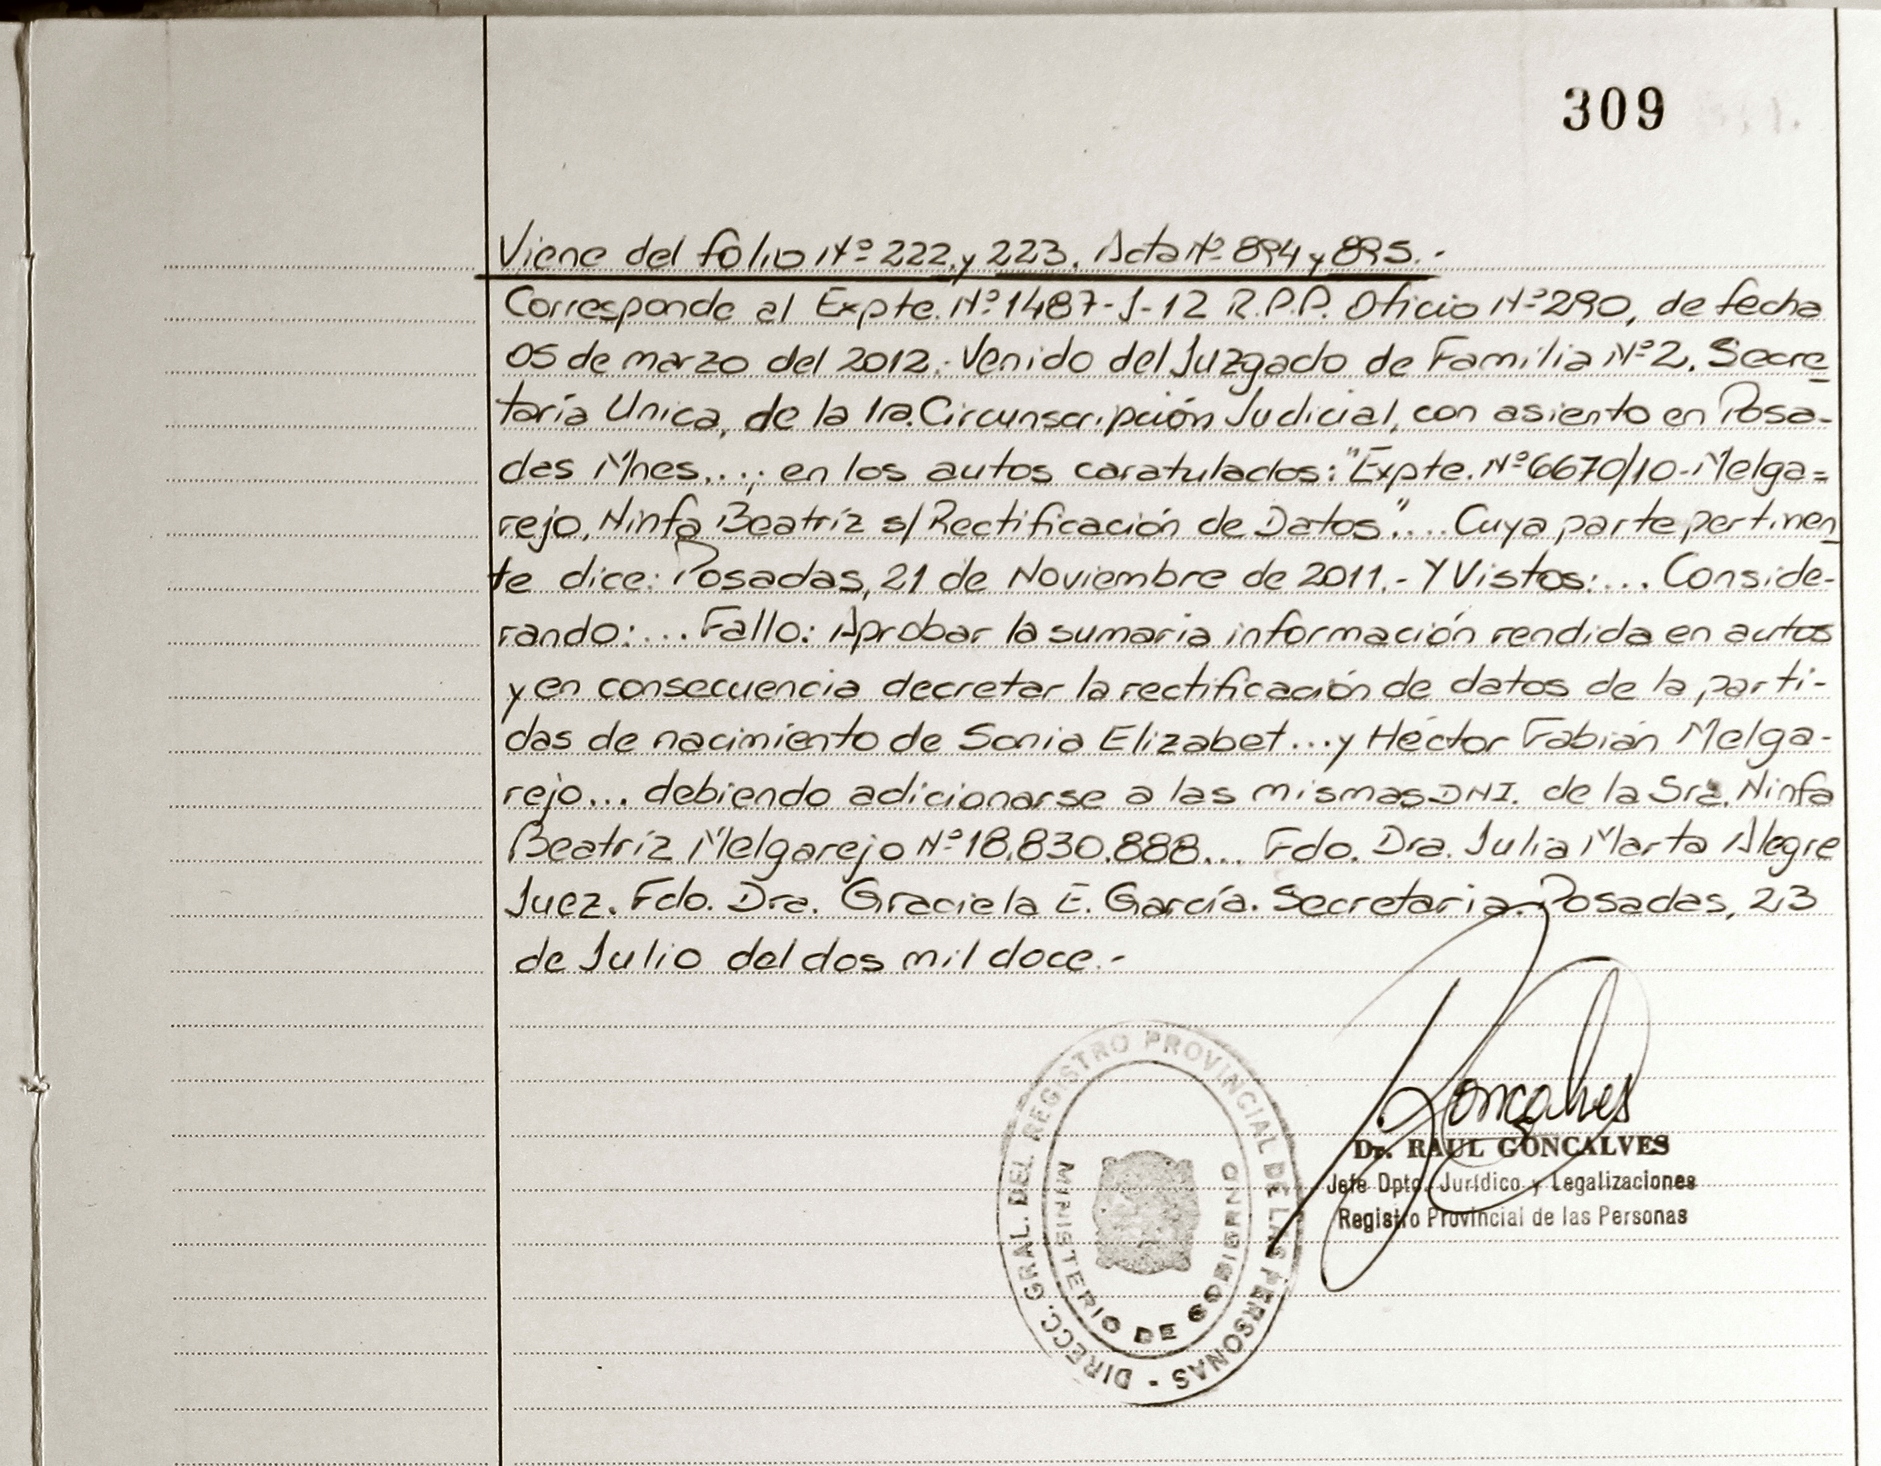 309
Viene del folio Nº 222 y 223. Acta Nº 894 y 895.-
Corresponde al Expte. Nº 1487-J-12 R.P.P. Oficio Nº 290, de fecha
05 de marzo del 2012.- Venido del Juzgado de Familia Nº 2. Secre
taría Unica, de la 1ra. Circunscripción Judicial, con asiento en Posa-
das Mnes...; en los autos caratulados: "Expte. Nº 6670/10-Melga=
rejo, Ninfa Beatríz s/Rectificación de Datos"... Cuya parte pertinen
te dice: Posadas, 21 de Noviembre de 2011.- Y Vistos:... Conside-
rando:... Fallo: Aprobar la sumaria información rendida en autos
y en consecuencia decretar la rectificación de datos de la parti-
das de nacimiento de Sonia Elizabet...y Héctor Fabián Melga-
rejo... debiendo adicionarse a las mismas DNI. de la Sra. Ninfa
Beatríz Melgarejo Nº 18.830.888... Fdo. Dra. Julia Marta Alegre
Juez. Fdo. Dra. Graciela E. García. Secretaria. Posadas, 23
de Julio del dos mil doce.-
Goncalves
Dr. RAUL GONCALVES
Jefe Dpto. Jurídico y Legalizaciones
Registro Provincial de las Personas
DIRECC. GRAL. DEL REGISTRO PROVINCIAL DE LAS PERSONAS -
MINISTERIO DE GOBIERNO